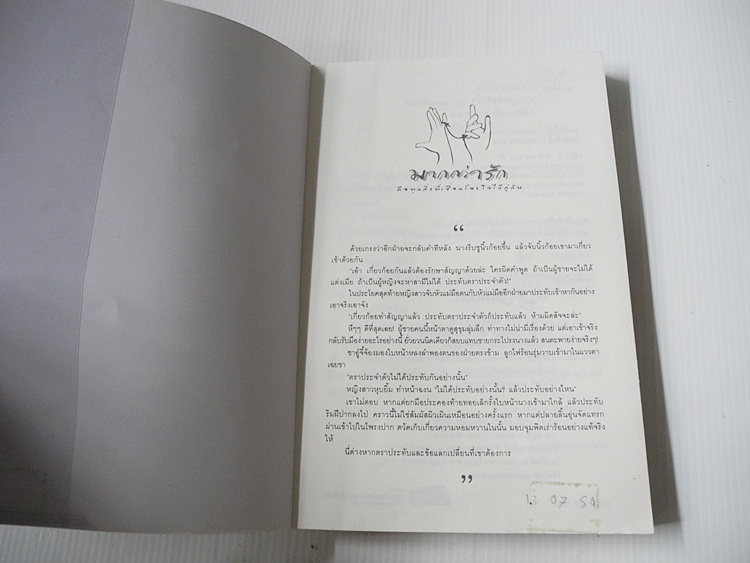 มากกว่ารัก
คือทุกสิ่งที่เชื่อมโยงใจให้คู่กัน
“
ด้วยเกรงว่าอีกฝ่ายจะกลับคำทีหลัง นางรีบชูนิ้วก้อยขึ้น แล้วจับนิ้วก้อยเขามาเกี่ยว
เข้าด้วยกัน
"เอ้า เกี่ยวก้อยกันแล้วต้องรักษาสัญญาด้วยล่ะ ใครผิดคำพูด ถ้าเป็นผู้ชายจะไม่ได้
แต่งเมีย ถ้าเป็นผู้หญิงจะหาสามีไม่ได้ ประทับตราประจำตัว!"
ในประโยคสุดท้ายหญิงสาวจับหัวแม่มือตนกับหัวแม่มืออีกฝ่ายมาประทับเข้าหากันอย่าง
เอาจริงเอาจัง
"เกี่ยวก้อยทำสัญญาแล้ว ประทับตราประจำตัวก็ประทับแล้ว ห้ามผิดสัจจะล่ะ"
หึๆๆ ดีที่สุดเลย! ผู้ชายคนนี้หน้าตาดูสุขุมลุ่มลึก ท่าทางไม่น่ามีเรื่องด้วย แต่เอาเข้าจริง
กลับรับมือง่ายอะไรอย่างนี้ ยั่วยวนนิดเดียวก็สยบแทบชายกระโปรงนางแล้ว สนตะพายง่ายจริงๆ!
ชายผู้นี้จ้องมองใบหน้าหลงลำพองตนของฝ่ายตรงข้าม ลูกไฟร้อนรุ่มวาบเข้ามาในแววตา
เฉยชา
"ตราประจำตัวไม่ได้ประทับกันอย่างนั้น"
หญิงสาวหุบยิ้ม ทำหน้าฉงน "ไม่ได้ประทับอย่างนั้น? แล้วประทับอย่างไหน"
เขาไม่ตอบ หากแต่ยกมือประคองท้ายทอยเล็กรั้งใบหน้านางเข้ามาใกล้ แล้วประทับ
ริมฝีปากลงไป คราวนี้ไม่ใช่สัมผัสผิวเผินเหมือนอย่างครั้งแรก หากแต่ปลายลิ้นอุ่นจัดแทรก
ผ่านเข้าไปในโพรงปาก ตวัดเก็บเกี่ยวความหอมหวานในนั้น มอบจุมพิตเร่าร้อนอย่างแท้จริง
ให้
นี่ต่างหากตราประทับและข้อแลกเปลี่ยนที่เขาต้องการ
”
13 07 54